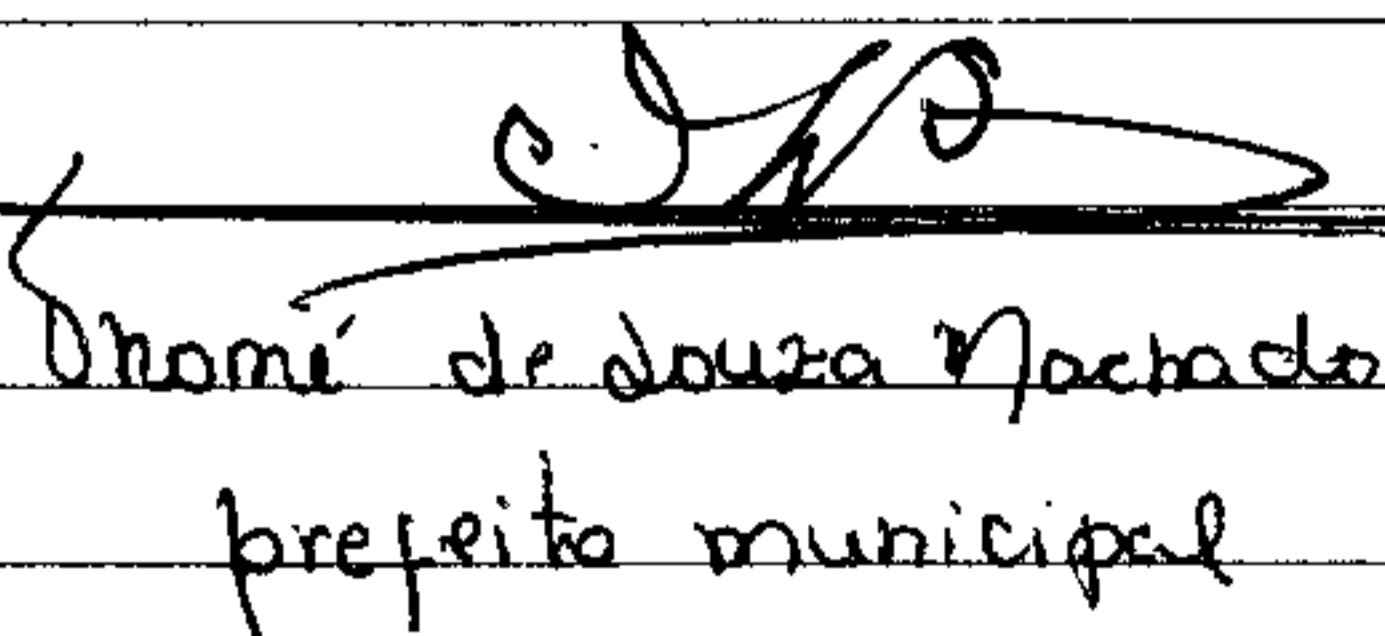 Thomé de Souza Machado
prefeito municipal